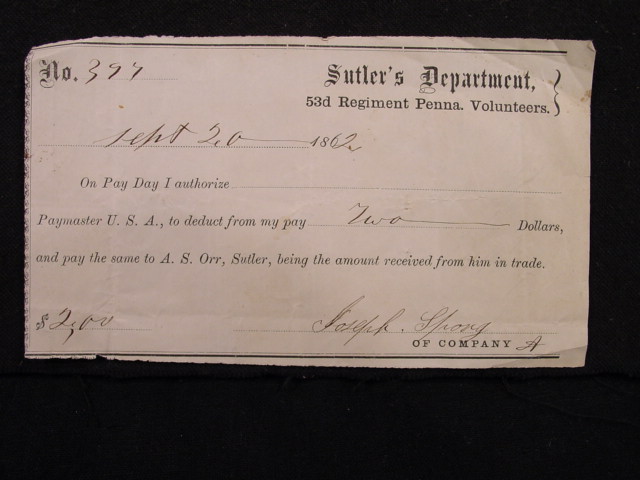 No. 397 Sutler's Department,
53d Regiment Penna. Volunteers.
Sept 20 1862
On Pay Day I authorize
Paymaster U. S. A., to deduct from my pay Two Dollars,
and pay the same to A. S. Orr, Sutler, being the amount received from him in trade.
$2,00 Joseph. Spong
OF COMPANY A